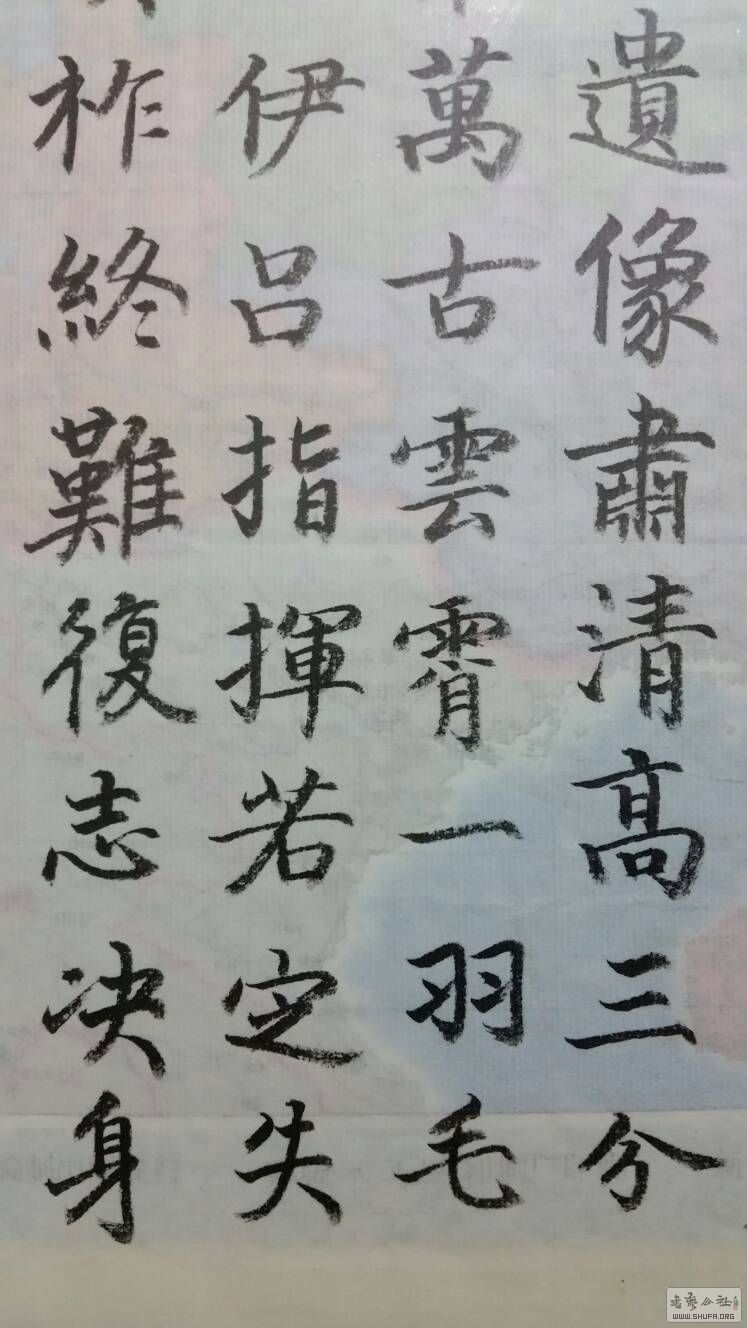 遺像肅清高三分
萬古雲霄一羽毛
伊呂指揮若定失
柞終難復志决身
WWW.SHUFA.ORG